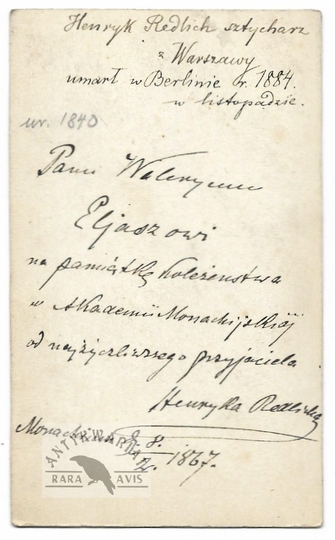 Henryk Redlich sztycharz
z Warszawy
umarł w Berlinie r. 1884.
w listopadzie.
ur. 1840
Panu Waleremu
Eljaszowi
na pamiątkę koleżeństwa
w Akademii Monachijskiéj
od najżyczliwszego przyjaciela
Henryka Redlicha
8.
2. 1867.
ANTYKWARIAT
RARA AVIS